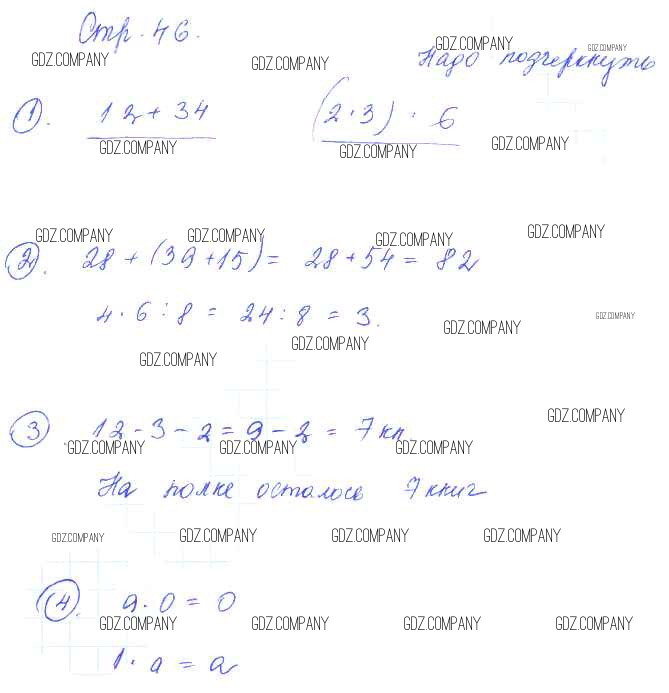 Стр. 46.
GDZ.COMPANY GDZ.COMPANY GDZ.COMPANY GDZ.COMPANY
Надо подчеркнуть
1. 12 + 34 (2 · 3) · 6
GDZ.COMPANY GDZ.COMPANY GDZ.COMPANY
GDZ.COMPANY GDZ.COMPANY GDZ.COMPANY GDZ.COMPANY
2. 28 + (39 + 15) = 28 + 54 = 82
4 · 6 : 8 = 24 : 8 = 3.
GDZ.COMPANY GDZ.COMPANY GDZ.COMPANY GDZ.COMPANY
3 12 - 3 - 2 = 9 - 2 = 7 кн
GDZ.COMPANY GDZ.COMPANY GDZ.COMPANY GDZ.COMPANY
На полке осталось 7 книг
GDZ.COMPANY GDZ.COMPANY GDZ.COMPANY GDZ.COMPANY
4. a · 0 = 0
GDZ.COMPANY GDZ.COMPANY GDZ.COMPANY GDZ.COMPANY
1 · a = a